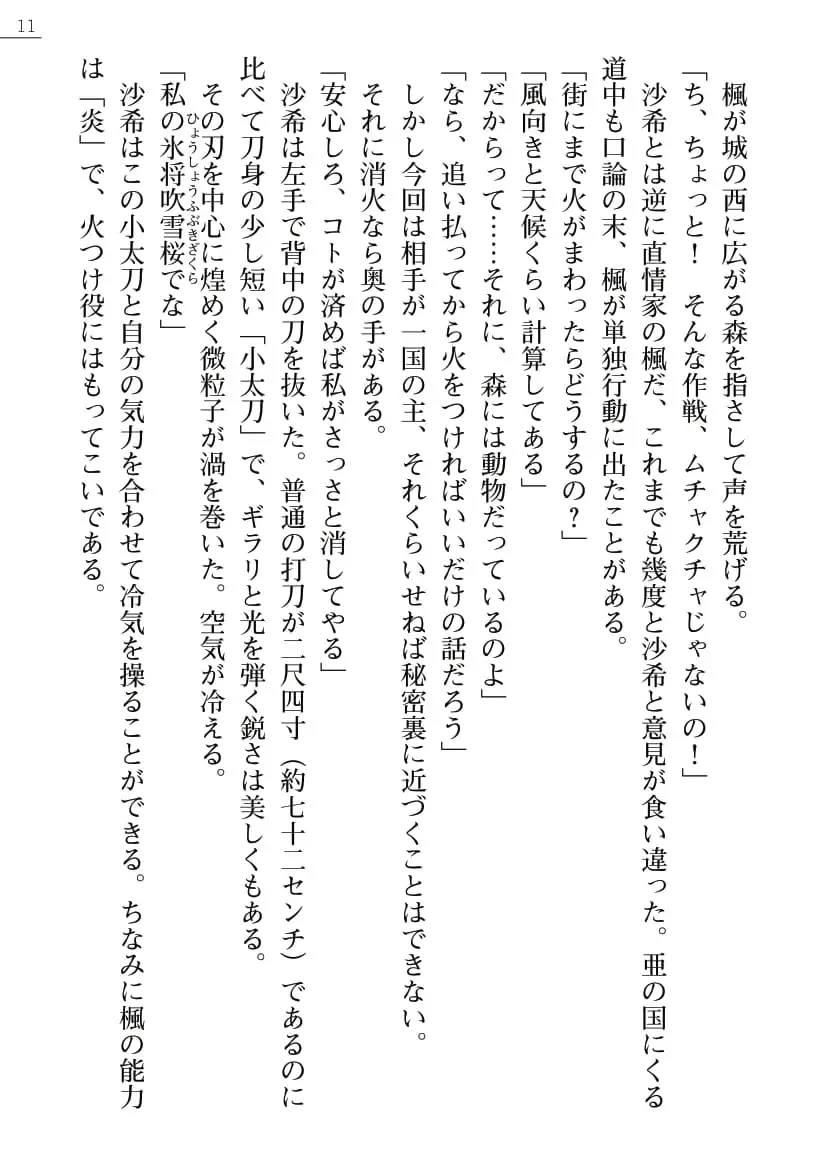 11
楓が城の西に広がる森を指さして声を荒げる。
「ち、ちょっと！　そんな作戦、ムチャクチャじゃないの！」
沙希とは逆に直情家の楓だ、これまでも幾度と沙希と意見が食い違った。亜の国にくる
道中も口論の末、楓が単独行動に出たことがある。
「街にまで火がまわったらどうするの？」
「風向きと天候くらい計算してある」
「だからって……それに、森には動物だっているのよ」
「なら、追い払ってから火をつければいいだけの話だろう」
しかし今回は相手が一国の主、それくらいせねば秘密裏に近づくことはできない。
それに消火なら奥の手がある。
「安心しろ、コトが済めば私がさっさと消してやる」
沙希は左手で背中の刀を抜いた。普通の打刀が二尺四寸（約七十二センチ）であるのに
比べて刀身の少し短い「小太刀」で、ギラリと光を弾く鋭さは美しくもある。
その刃を中心に煌めく微粒子が渦を巻いた。空気が冷える。
ひょうしょうふぶきざくら
「私の氷将吹雪桜でな」
沙希はこの小太刀と自分の気力を合わせて冷気を操ることができる。ちなみに楓の能力
は「炎」で、火つけ役にはもってこいである。